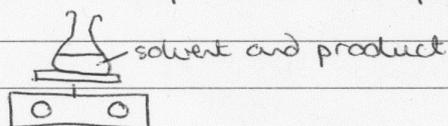 solvent and product